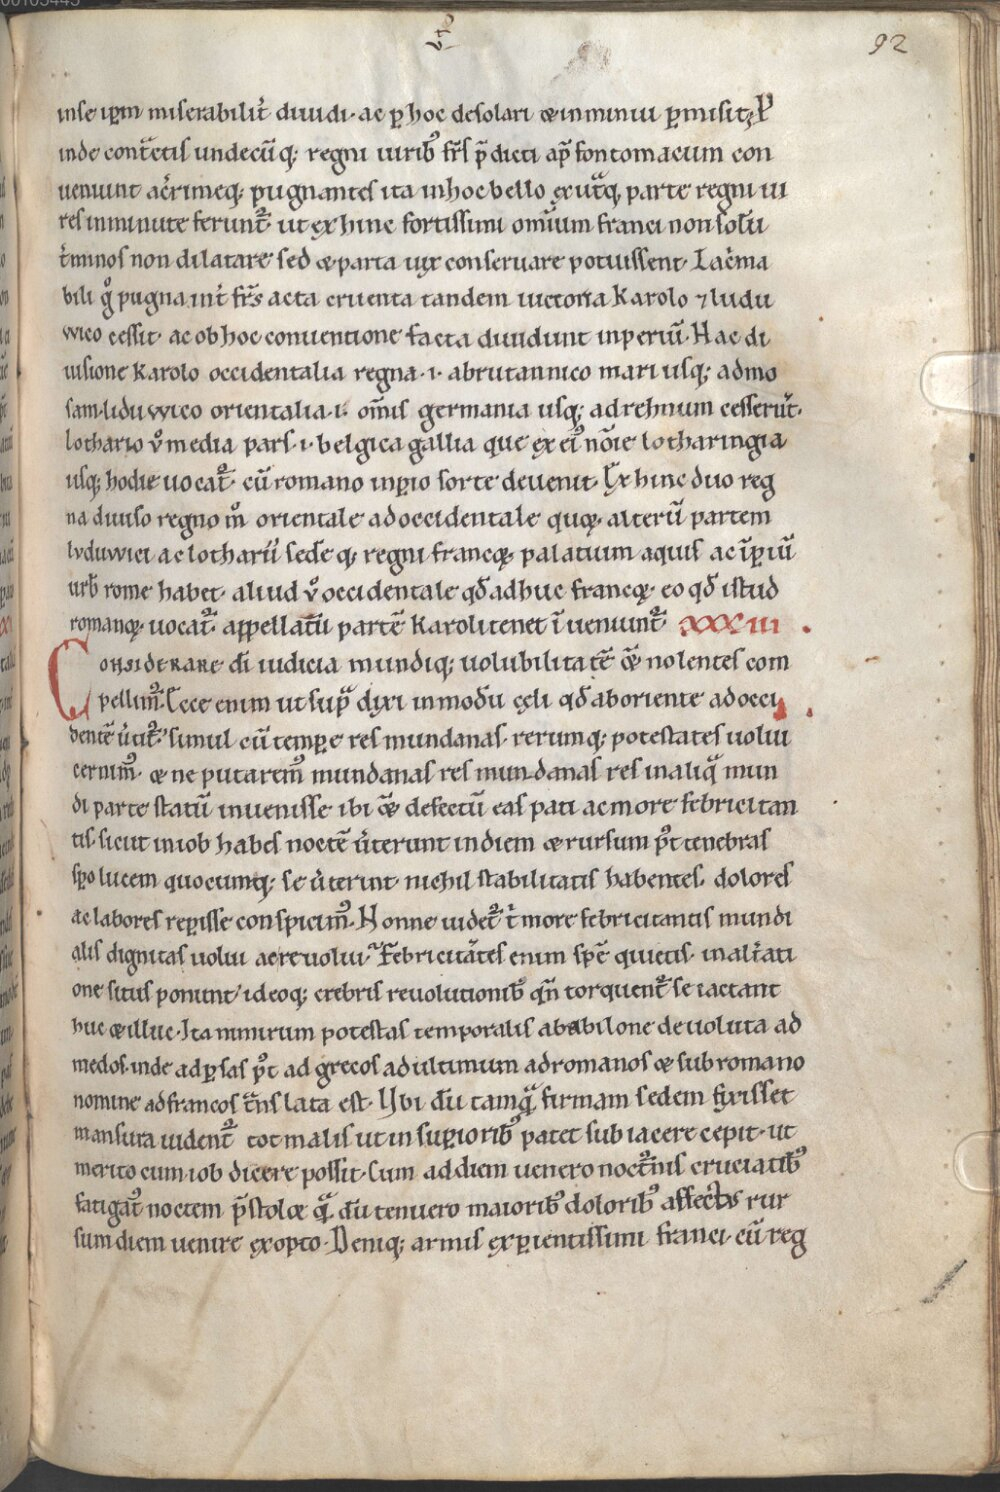 00103443
92
inse ip̄m miserabilit̄ diuidi· ac ꝑ hoc desolari & in minui ꝑmisit· P̱
inde cont̄ctis undecūq; regni uirib; fr̄s p̄dicti ap̄ fontomacum con
ueniunt ac̄rimeq; pugnantes ita in hoc bello ex ut̄q; parte regni ui
res inminute ferunt̄ ut ex hinc fortissimi omīum franci non solū
t̄minos non dilatare sed & parta uix conseruare potuissent· Lac̄ma
bili g̊ pugna int̄ fr̄s acta cruenta tandem uictoria Karolo ⁊ ludu
wico cessit· ac ob hoc conuentione facta diuidunt inperiū· Hac di
uisione Karolo occidentalia regna ·i· a britannico mari usq; ad mo
sam· liduwico orientalia ·i· om̄is germania usq; ad rehnum cesserūt·
lothario ů media pars ·i· belgica gallia que ex ei᷒ nōie lotharingia
usq; hodie uocat̄· cū romano inꝑio sorte deuenit· Ex hinc duo reg
na diuiso regno m̊ orientale ad occidentale quoq; alterū partem
luduwici ac lotharii sedē q; regni francoꝝ palatium aquis ac īꝑiū
urb̄ rome habet· aliud ů occidentale qd̄ adhuc francoꝝ eo qd̄ istud
romanoꝝ uocat̄· appellatū partē Karoli tenet īueniunt̄ XXXIII
Considerare dī iudicia mundiq; uolubilitatē q̄ nolentes com
pellim᷒· Ecce enim ut sup̄ dixi in modū cęli qd̄ ab oriente ad occi
dentē ūtit̄ simul cū tempore res mundanas rerumq; potestates uolui
cernim᷒· & ne putarem᷒ mundanas res mundanas res in aliq̄ mun
di parte statū inuenisse ibi q̄ defectū eas pati ac more febricitan
tis· sicut in iob habes noctē ūterunt in diem & rursum p᷒t tenebras
spo lucem quocumq; se ūterint nichil stabilitatis habentes· dolores
ac labores reꝑisse conspicim᷒· Nonne uidet̄ t̄ more febricitantis mundi
alis dignitas uolui ac reuolui· Febricitātes enim spē quietis in alt̄ati
one situs ponunt ideoq; crebris reuolutionib; qn̄ torquent̄ se iactant
huc & illuc· Ita nimirum potestas temporalis a babilone deuoluta ad
medos· inde ad ꝑsas p᷒t ad grecos ad ultimum ad romanos & sub romano
nomine ad francos t̄nslata est· Ubi dū tamq̄ firmam sedem fixisset
mansura uident̄ tot malis ut in suꝑiorib; patet subiacere cepit· ut
merito cum iob dicere possit· Cum ad diem uenero noct̄nis cruciatib;
fatigat᷒ noctem p̄stol& q̄ dū tenuero maiorib; dolorib; affectus rur
sum diem uenire exopto· Deniq; armis exꝑientissimi franci· cū reg